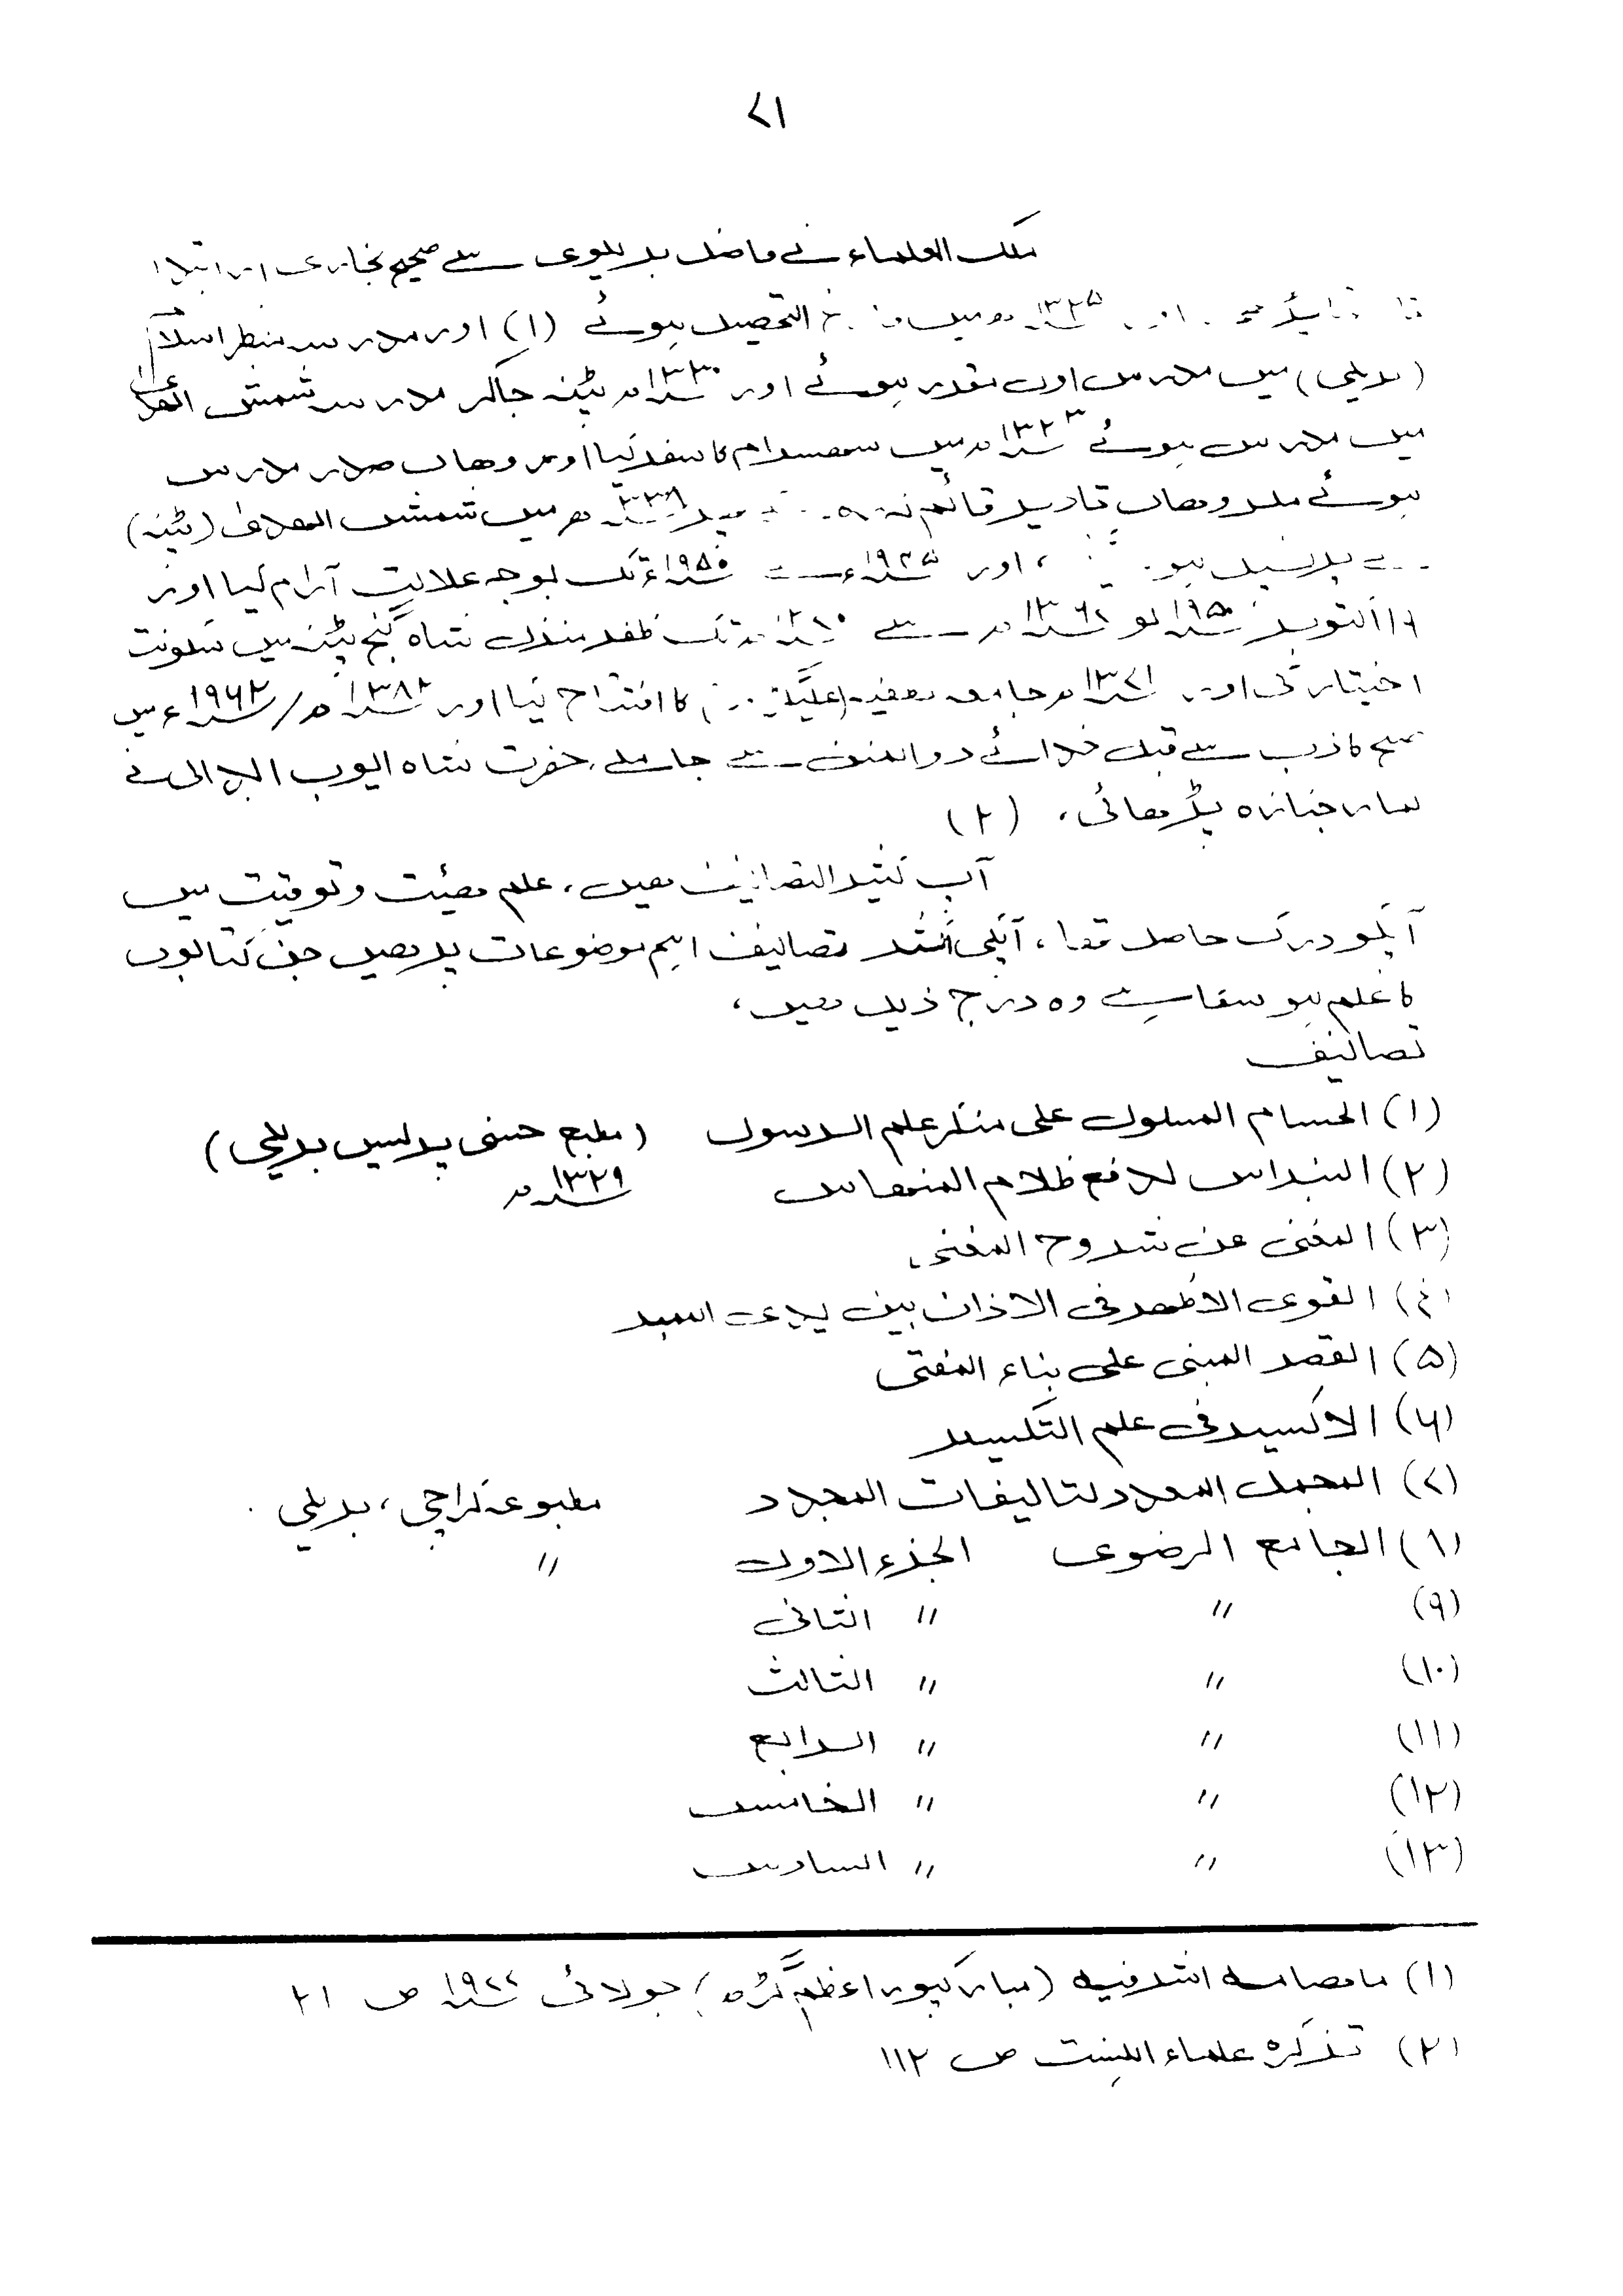 ۷۱
ملک العلماء نے فاضل بریلوی سے صحیح بخاری ابتدا
تا پڑھی اور ۱۳۲۵ھ میں فارغ التحصیل ہوئے (۱) اور مدرسہ منظر اسلام
(بریلی) میں مدرس اول مقرر ہوئے اور ۱۳۳۰ھ پٹنہ جاکر مدرسہ شمس الھدیٰ
میں مدرس ہوئے ھ میں سھسرام کا سفر کیا اور وھاں صدر مدرس
ہوئے وھاں تادیر قائم نہ رہ ۱۳۳۸ھ میں شمس الھدیٰ (پٹنہ)
کے پرنسپل ہو ، اور ء سے ۱۹۵۰ء تک بوجہ علالت آرام کیا اور
اکتوبر ۱۹۵۰ء کو ھ سے ھ تک ظفر منزل شاہ گنج پٹنہ میں سکونت
اختیار کی اور ۱۳۷۱ھ جامعہ لطیفیہ کا افتتاح کیا اور ۱۳۸۲ھ/۱۹۶۲ء میں
صبح کاذب سے قبل خدائے ذوالمنن سے جا ملے، حضرت شاہ ایوب ابدالی نے
نماز جنازہ پڑھائی، (۲)
آپ کثیر التصانیف ھیں، علم ھیئت و توقیت میں
آپکو درک حاصل تھا، آپکی اکثر تصانیف اہم موضوعات پر ھیں جن کتابوں
کا علم ہو سکا ہے وہ درج ذیل ھیں،
تصانیف
(۱) الحسام المسلول علی منکر علم الرسول (مطبع حسنی پریس بریلی)
(۲) النبراس لدفع ظلام المنھاس ۱۳۲۹ھ
(۳) المغنی عن شروح المغنی
(۴) القوی الاظھر فی الاذان بین یدی المنبر
(۵) القصر المبنی علی بناء المغنی
(۶) الاکسیر فی علم التکسیر
(۷) المجمل المعدد لتالیفات المجدد مطبوعہ کراچی، بریلی
(۸) الجامع الرضوی الجزء الاول 〃
(۹) 〃 〃 الثانی
(۱۰) 〃 〃 الثالث
(۱۱) 〃 〃 الرابع
(۱۲) 〃 〃 الخامس
(۱۳) 〃 〃 السادس
(۱) ماھنامہ اشرفیہ (مبارکپور اعظم گڑھ) جولائی ۱۹۷۷ء ص ۲۱
(۲) تذکرہ علماء اہلسنت ص ۱۱۲